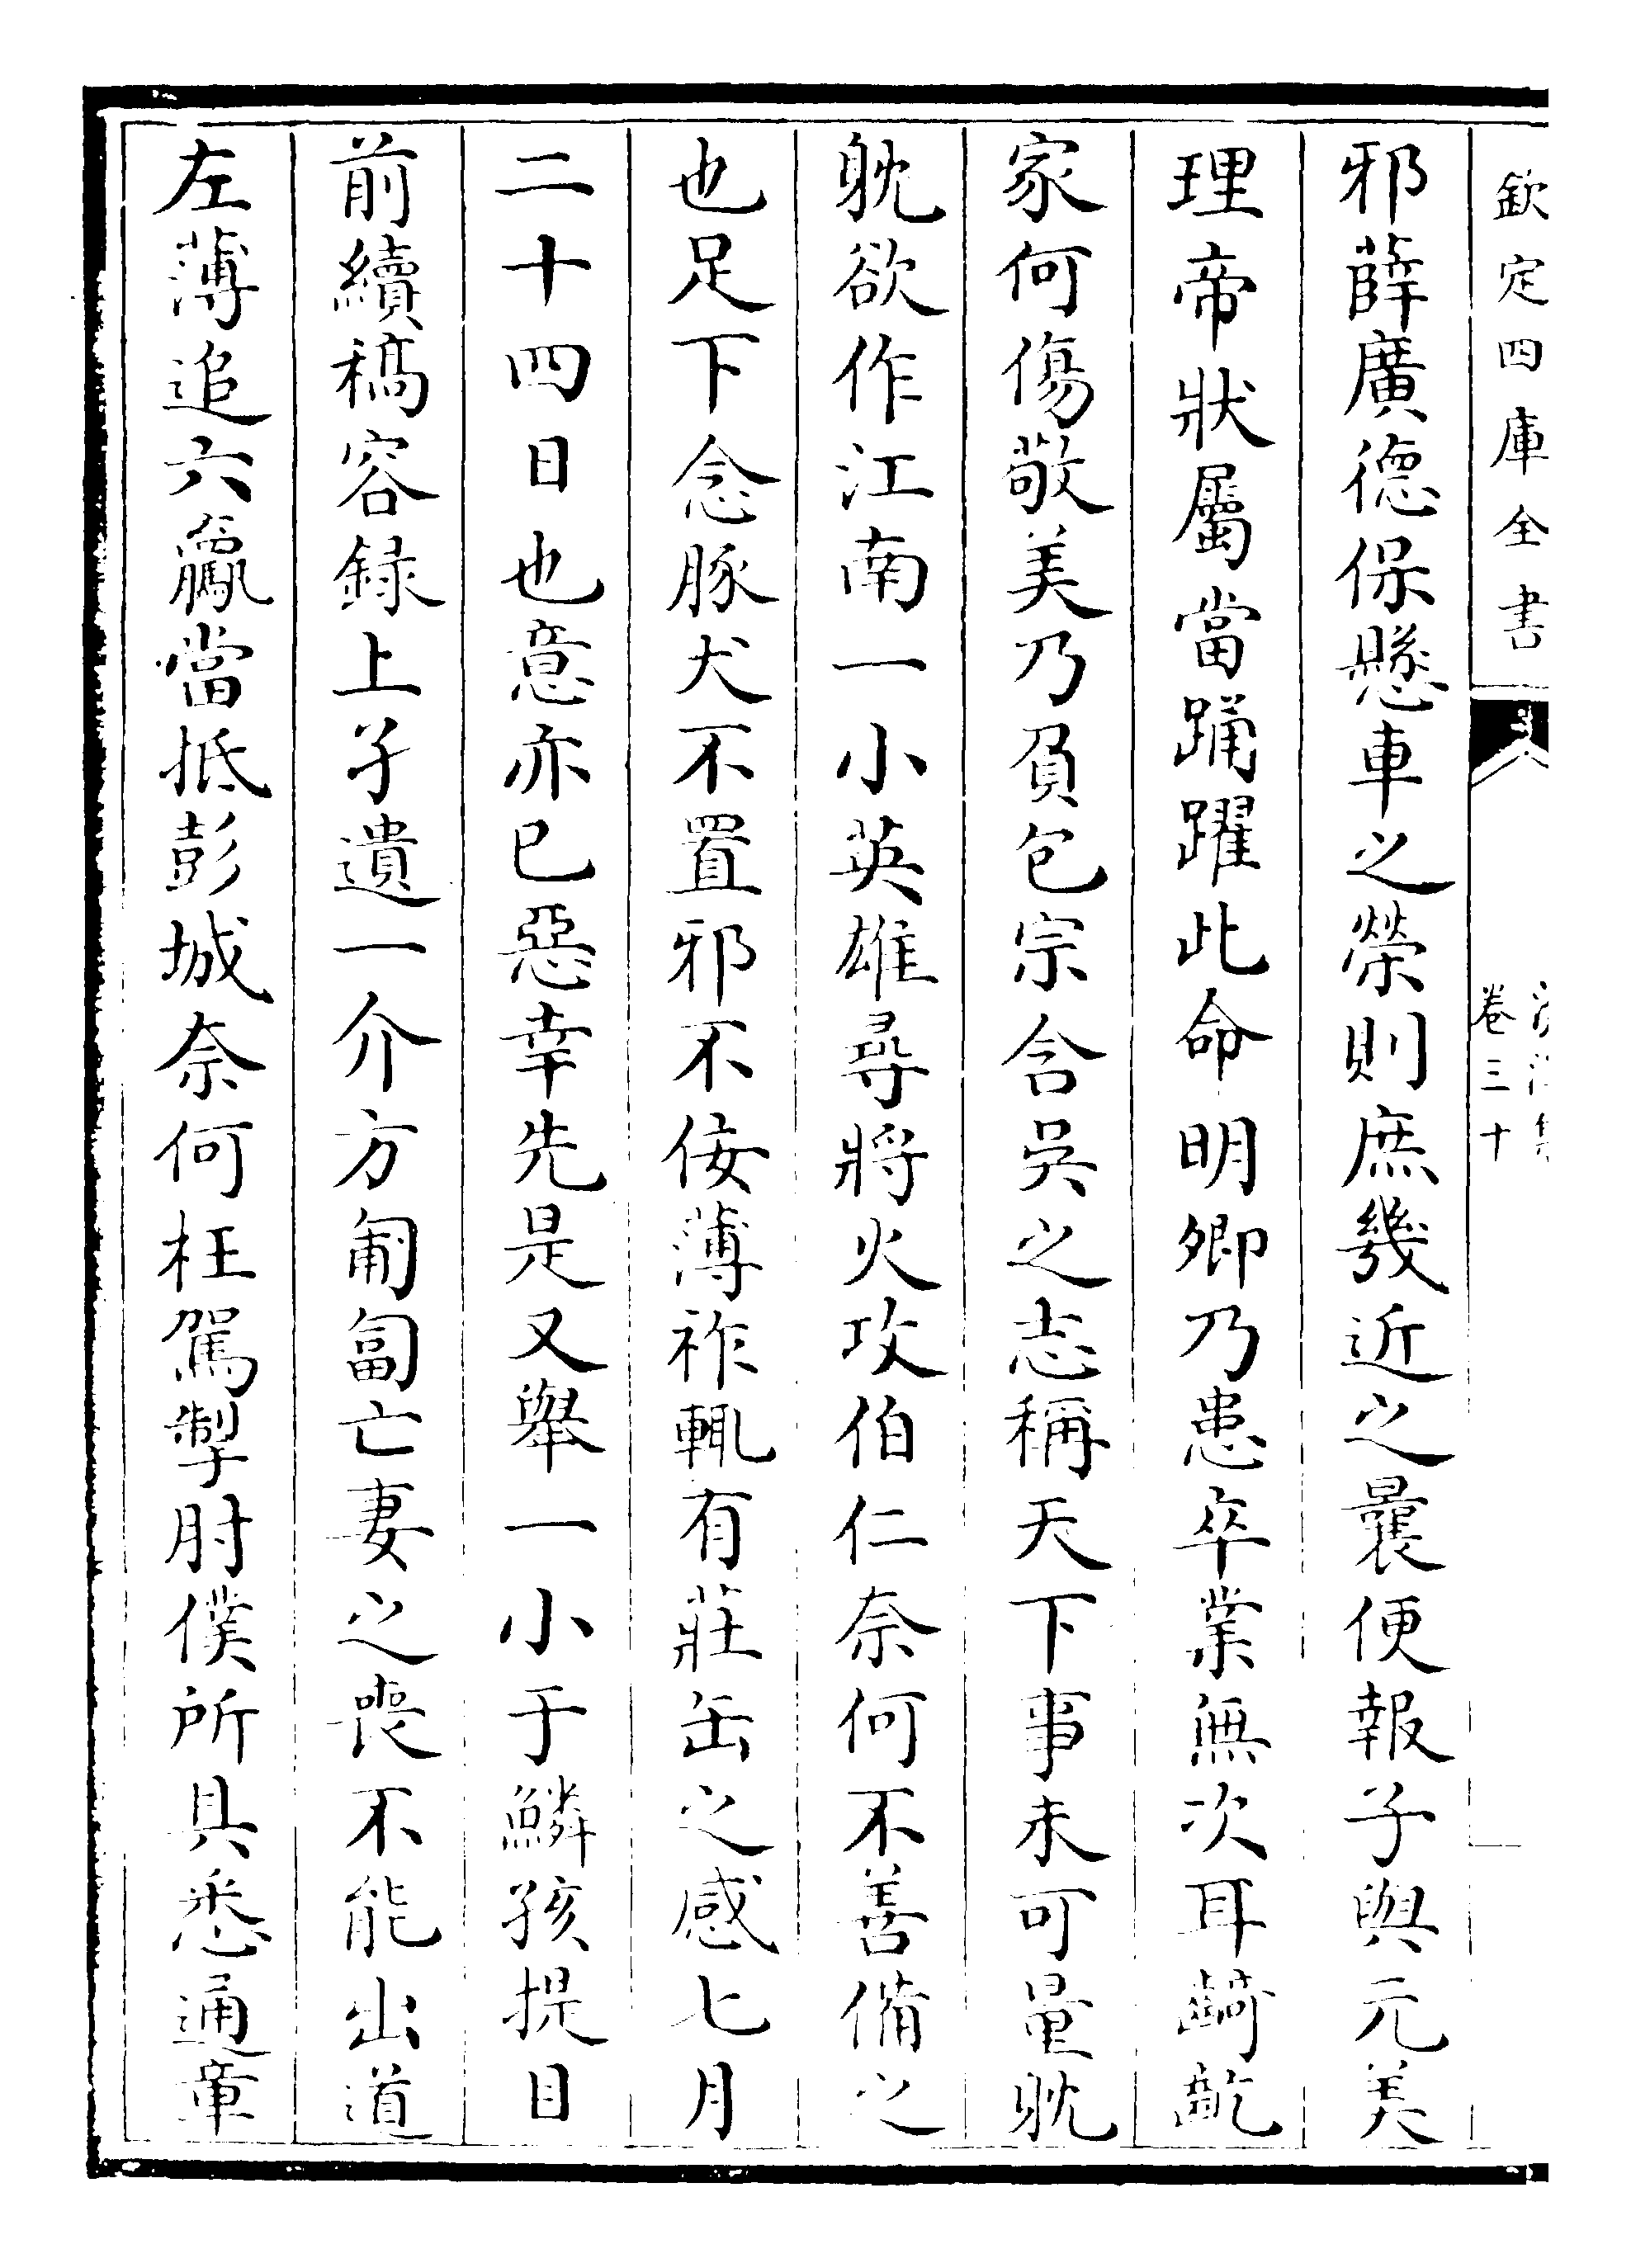 欽定四庫全書
卷三十
邪薛廣德保懸車之榮則庶幾近之曩便報子與元美
理帝狀屬當踊躍此命明卿乃患卒業無次耳齮齕
家何傷敬美乃負包宗含吳之志稱天下事未可量眈
眈欲作江南一小英雄尋將火攻伯仁奈何不善備之
也足下念豚犬不置邪不佞薄祚輒有莊缶之感七月
二十四日也意亦已惡幸先是又舉一小于鱗孩提目
前續稿容録上孑遺一介方匍匐亡妻之喪不能出道
左薄追六驘當抵彭城奈何枉駕掣肘僕所具悉通章